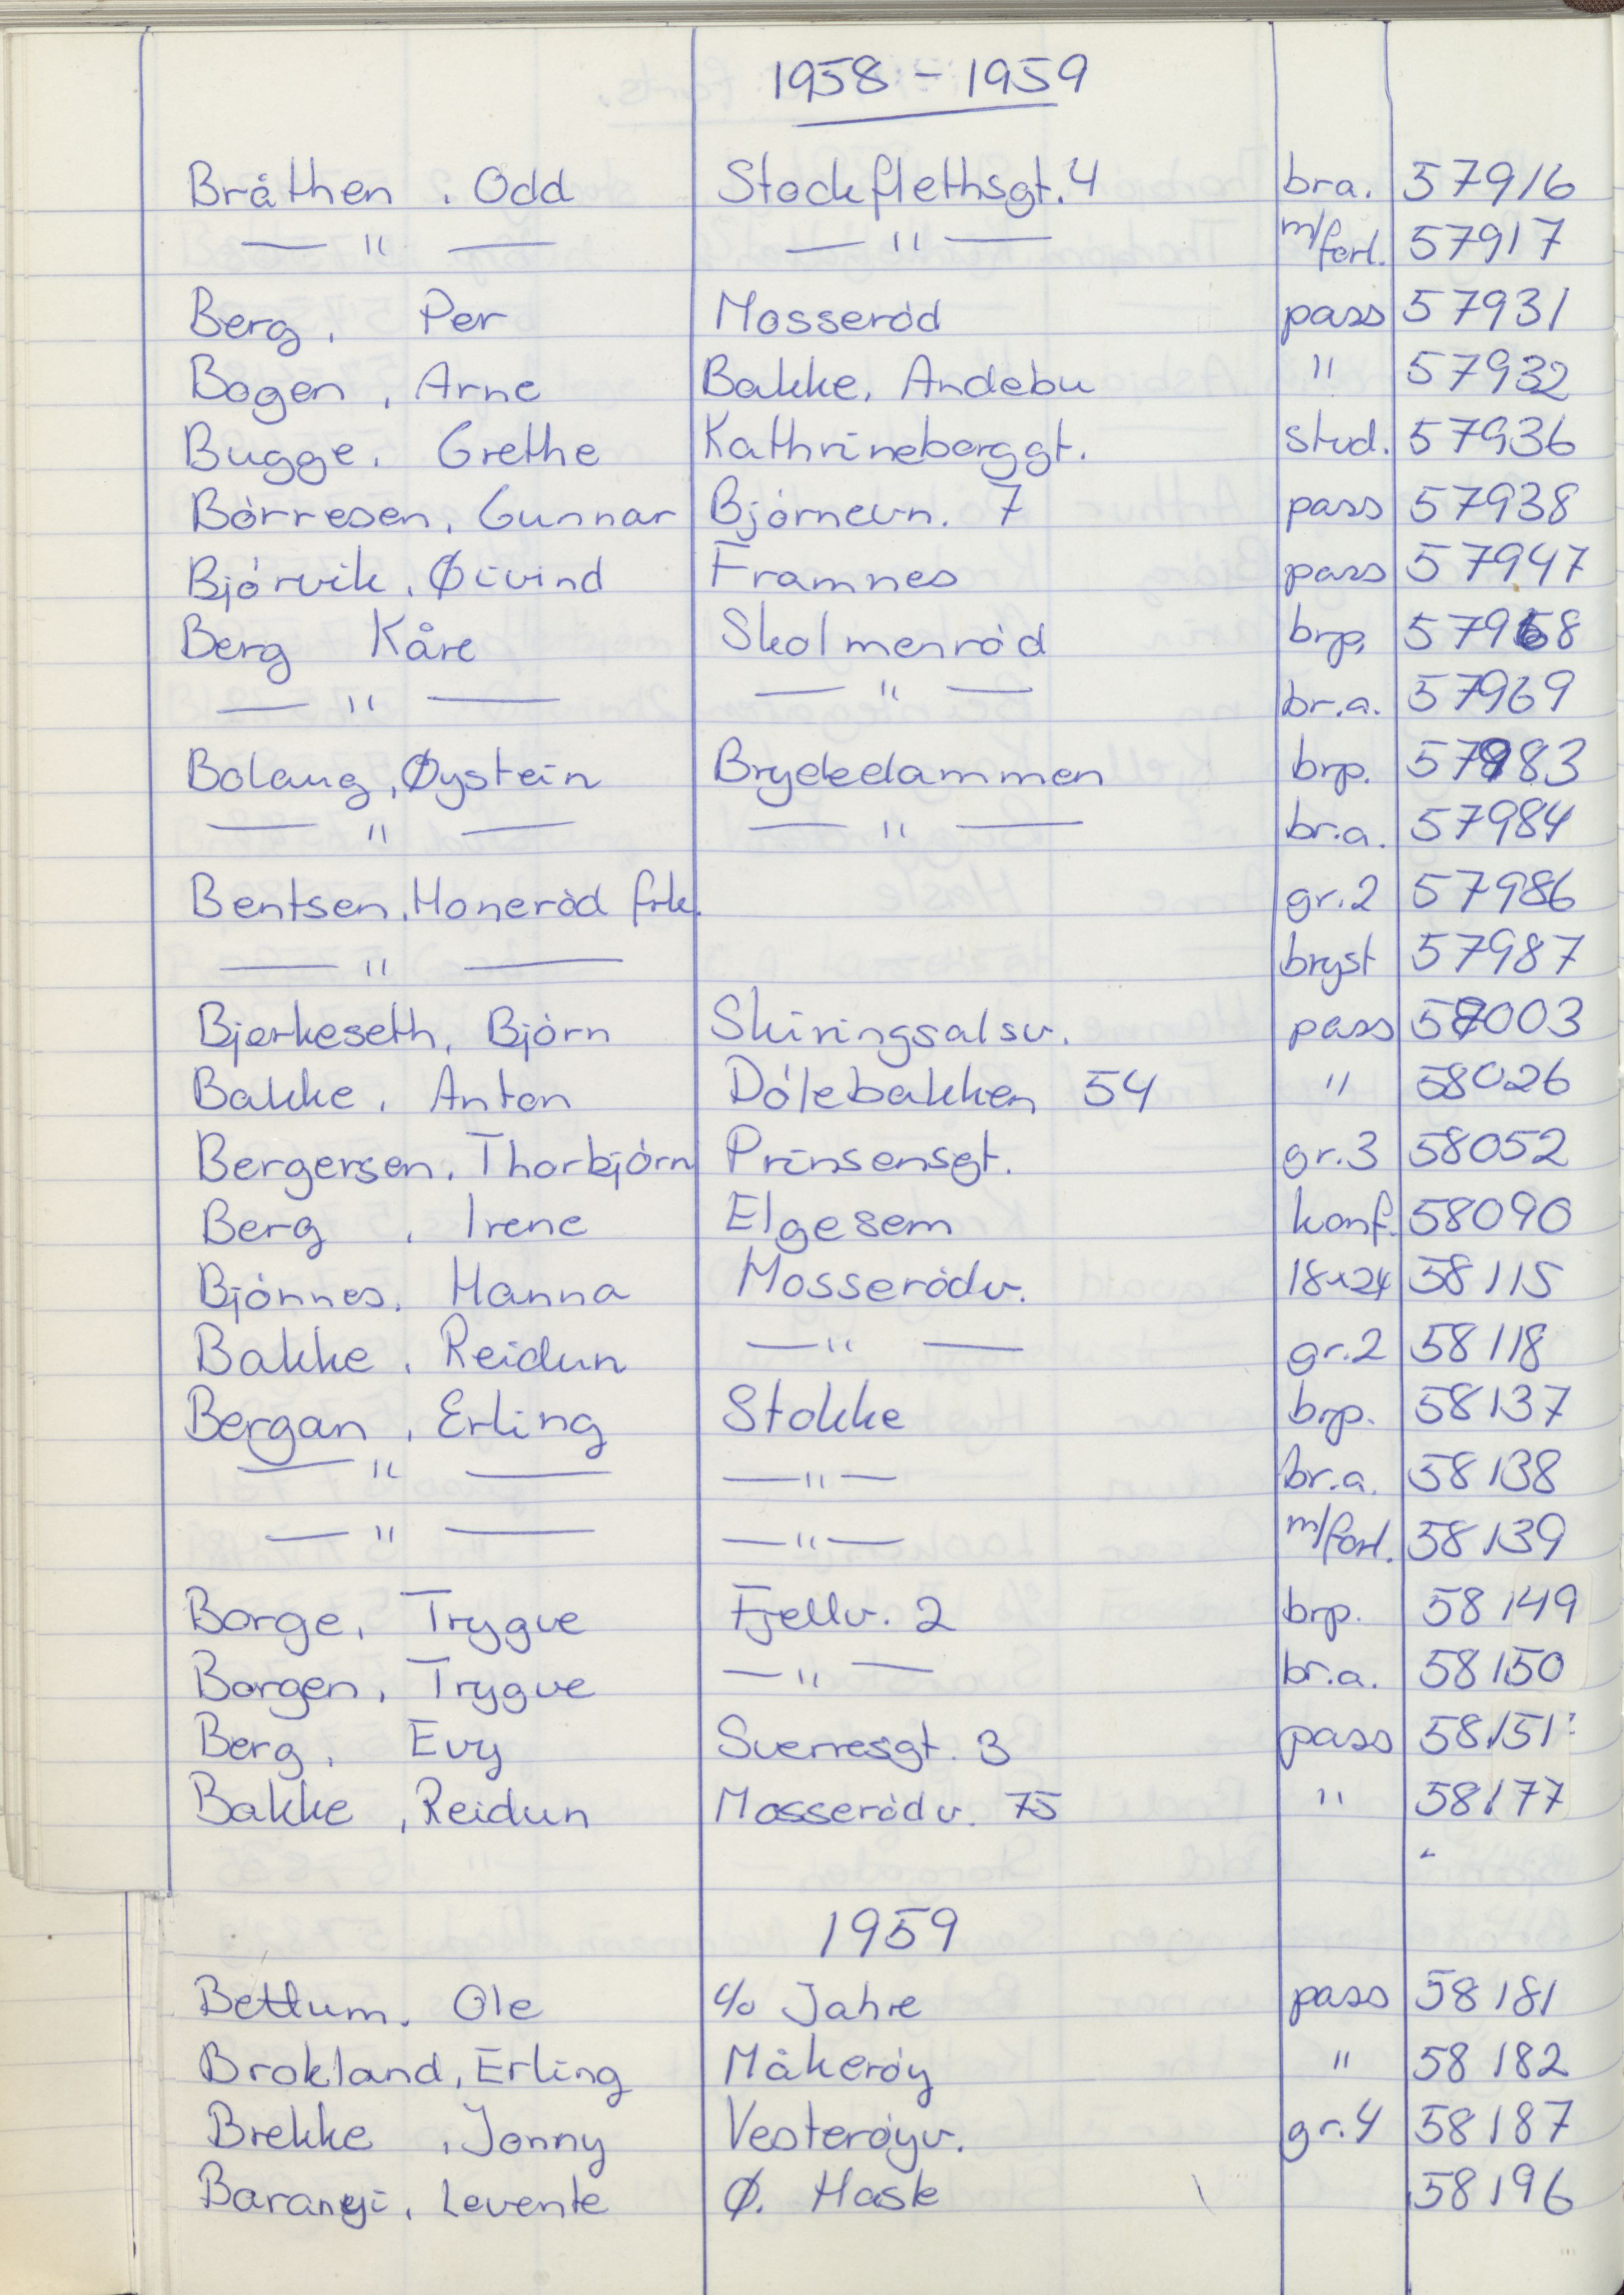 1958 - 1959
Bråthen, Odd Stockflethsgt. 4 bra. 57916
— " — — " — m/forl. 57917
Berg, Per Mosserød pass 57931
Bogen, Arne Bakke, Andebu " 57932
Bugge, Grethe Kathrineborggt. stud. 57936
Børresen, Gunnar Bjørnevn. 7 pass 57938
Bjørvik, Øivind Framnes pass 57947
Berg Kåre Skolmenrød brp. 57968
— " — — " — br.a. 57969
Bolaug, Øystein Brydedammen brp. 57983
— " — — " — br.a. 57984
Bentsen, Honerød frk. gr.2 57986
— " — bryst 57987
Bjerkeseth, Bjørn Skiringsalsv. pass 58003
Bakke, Anton Dølebakken 54 " 58026
Bergersen, Thorbjørn Prinsensgt. gr.3 58052
Berg, Irene Elgesem konf. 58090
Bjønnes, Hanna Mosserødv. 18x24 58115
Bakke, Reidun — " — gr.2 58118
Bergan, Erling Stokke brp. 58137
— " — — " — br.a. 58138
— " — — " — m/forl. 58139
Borge, Trygve Fjellv. 2 brp. 58149
Borgen, Trygve — " — br.a. 58150
Berg, Evy Sverresgt. 3 pass 58151
Bakke, Reidun Mosserødv. 75 " 58177
1959
Bettum, Ole c/o Jahre pass 58181
Brokland, Erling Måkerøy " 58182
Brekke, Jonny Vesterøyv. gr.4 58187
Baranyi, Levente Ø. Hasle 58196